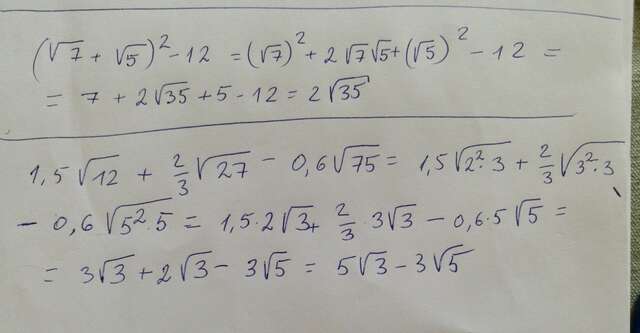 (√7 + √5)² - 12 = (√7)² + 2√7√5 + (√5)² - 12 =
= 7 + 2√35 + 5 - 12 = 2√35
1,5√12 + 2/3√27 - 0,6√75 = 1,5√2²·3 + 2/3√3²·3
- 0,6√5²·5 = 1,5·2√3 + 2/3·3√3 - 0,6·5√5 =
= 3√3 + 2√3 - 3√5 = 5√3 - 3√5